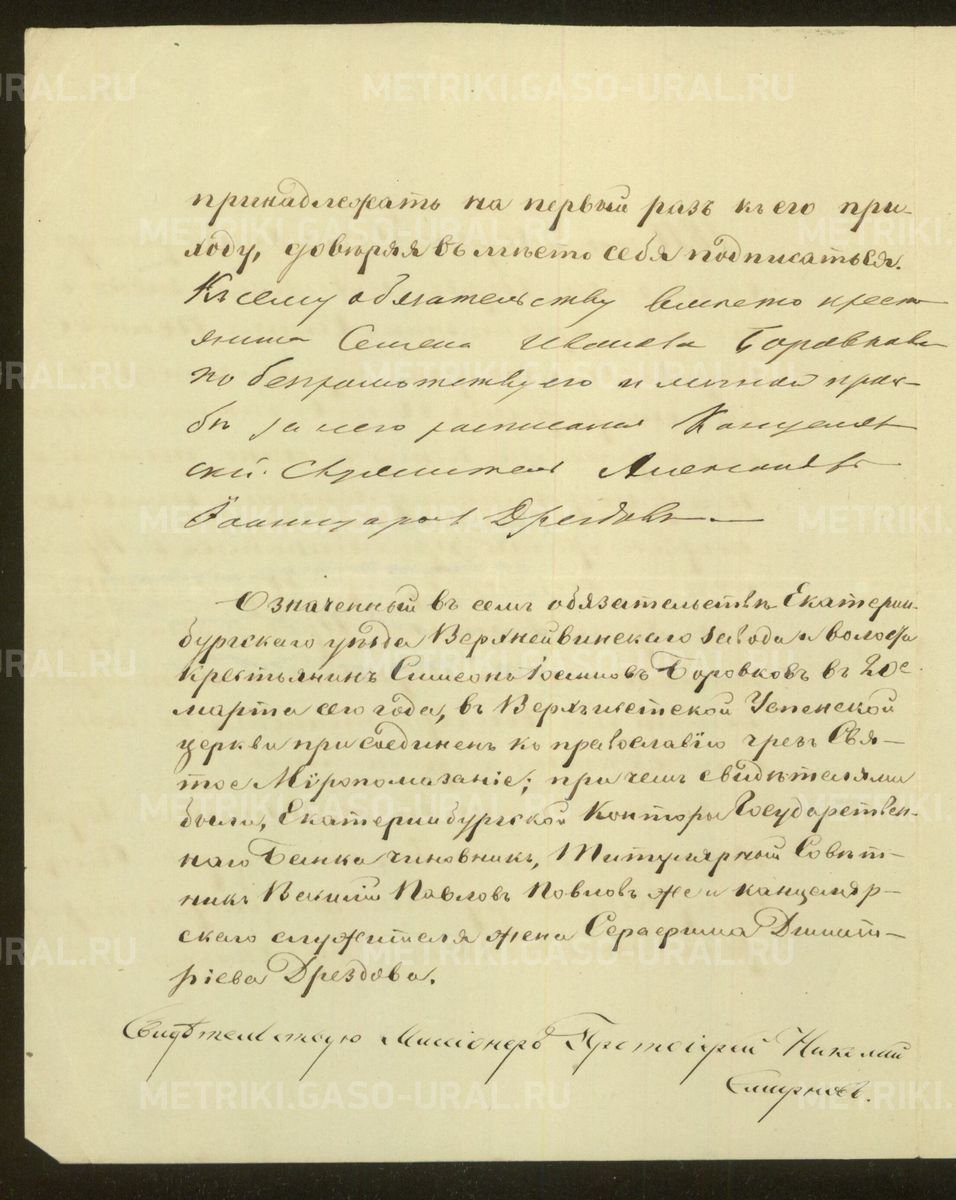 принадлежать на первый разъ къ его при-
ходу, довѣряя въ мѣсто себя подписаться.
Къ сему обязательству вместо кресть
янина Семена Иванова Боровкова
по безграмотству его и личной прозь-
бѣ за него росписался Канцеляр
скій Служитель Александръ
Дрездовъ
Означенный въ семъ обязательствѣ Екатерин-
бургскаго уѣзда Верхнейвинскаго завода и волости
крестьянинъ Симеонъ Боровковъ въ 20е
марта сего года, въ Верхъисетской Успенской
церкви присоединенъ къ православію чрезъ Свя-
тое Мѵропомазаніе; при чемъ свидѣтелями
были, Екатеринбургской Конторы Государствен-
наго Банка чиновникъ, Титулярный Совѣт-
никъ Василій Павловъ Повловъ же и канцеляр-
скаго служителя жена Серафима Димит-
ріева Дрездова.
Свидѣтельствую Миссіонеръ Протоіерей Николай
Смирновъ.
METRIKI.GASO-URAL.RU